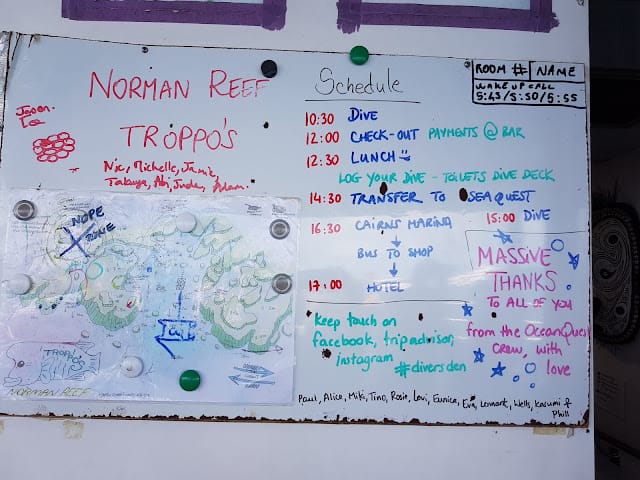 NORMAN REEF
TROPPO'S
Jason
Nic, Michelle, Jamie,
Tatsuya, Abi, Jude, Adam.
NOPE
ZONE
TROPPO'S
NORMAN REEF
Schedule
10:30 DIVE
12:00 CHECK-OUT PAYMENTS @ BAR
12:30 LUNCH
LOG YOUR DIVE - TOILETS DIVE DECK
14:30 TRANSFER TO SEAQUEST
15:00 DIVE
16:30 CAIRNS MARINA
BUS TO SHOP
17:00 HOTEL
keep touch on
facebook, tripadvisor,
instagram
#diversden
ROOM # NAME
WAKE UP CALL
5:45/5:50/5:55
MASSIVE
THANKS
TO ALL OF YOU
from the OceanQuest
CREW, with
love
Paul, Alice, Miki, Tino, Rosie, Levi, Eunice, Eva, Lennart, Wells, Kasumi &
Phill